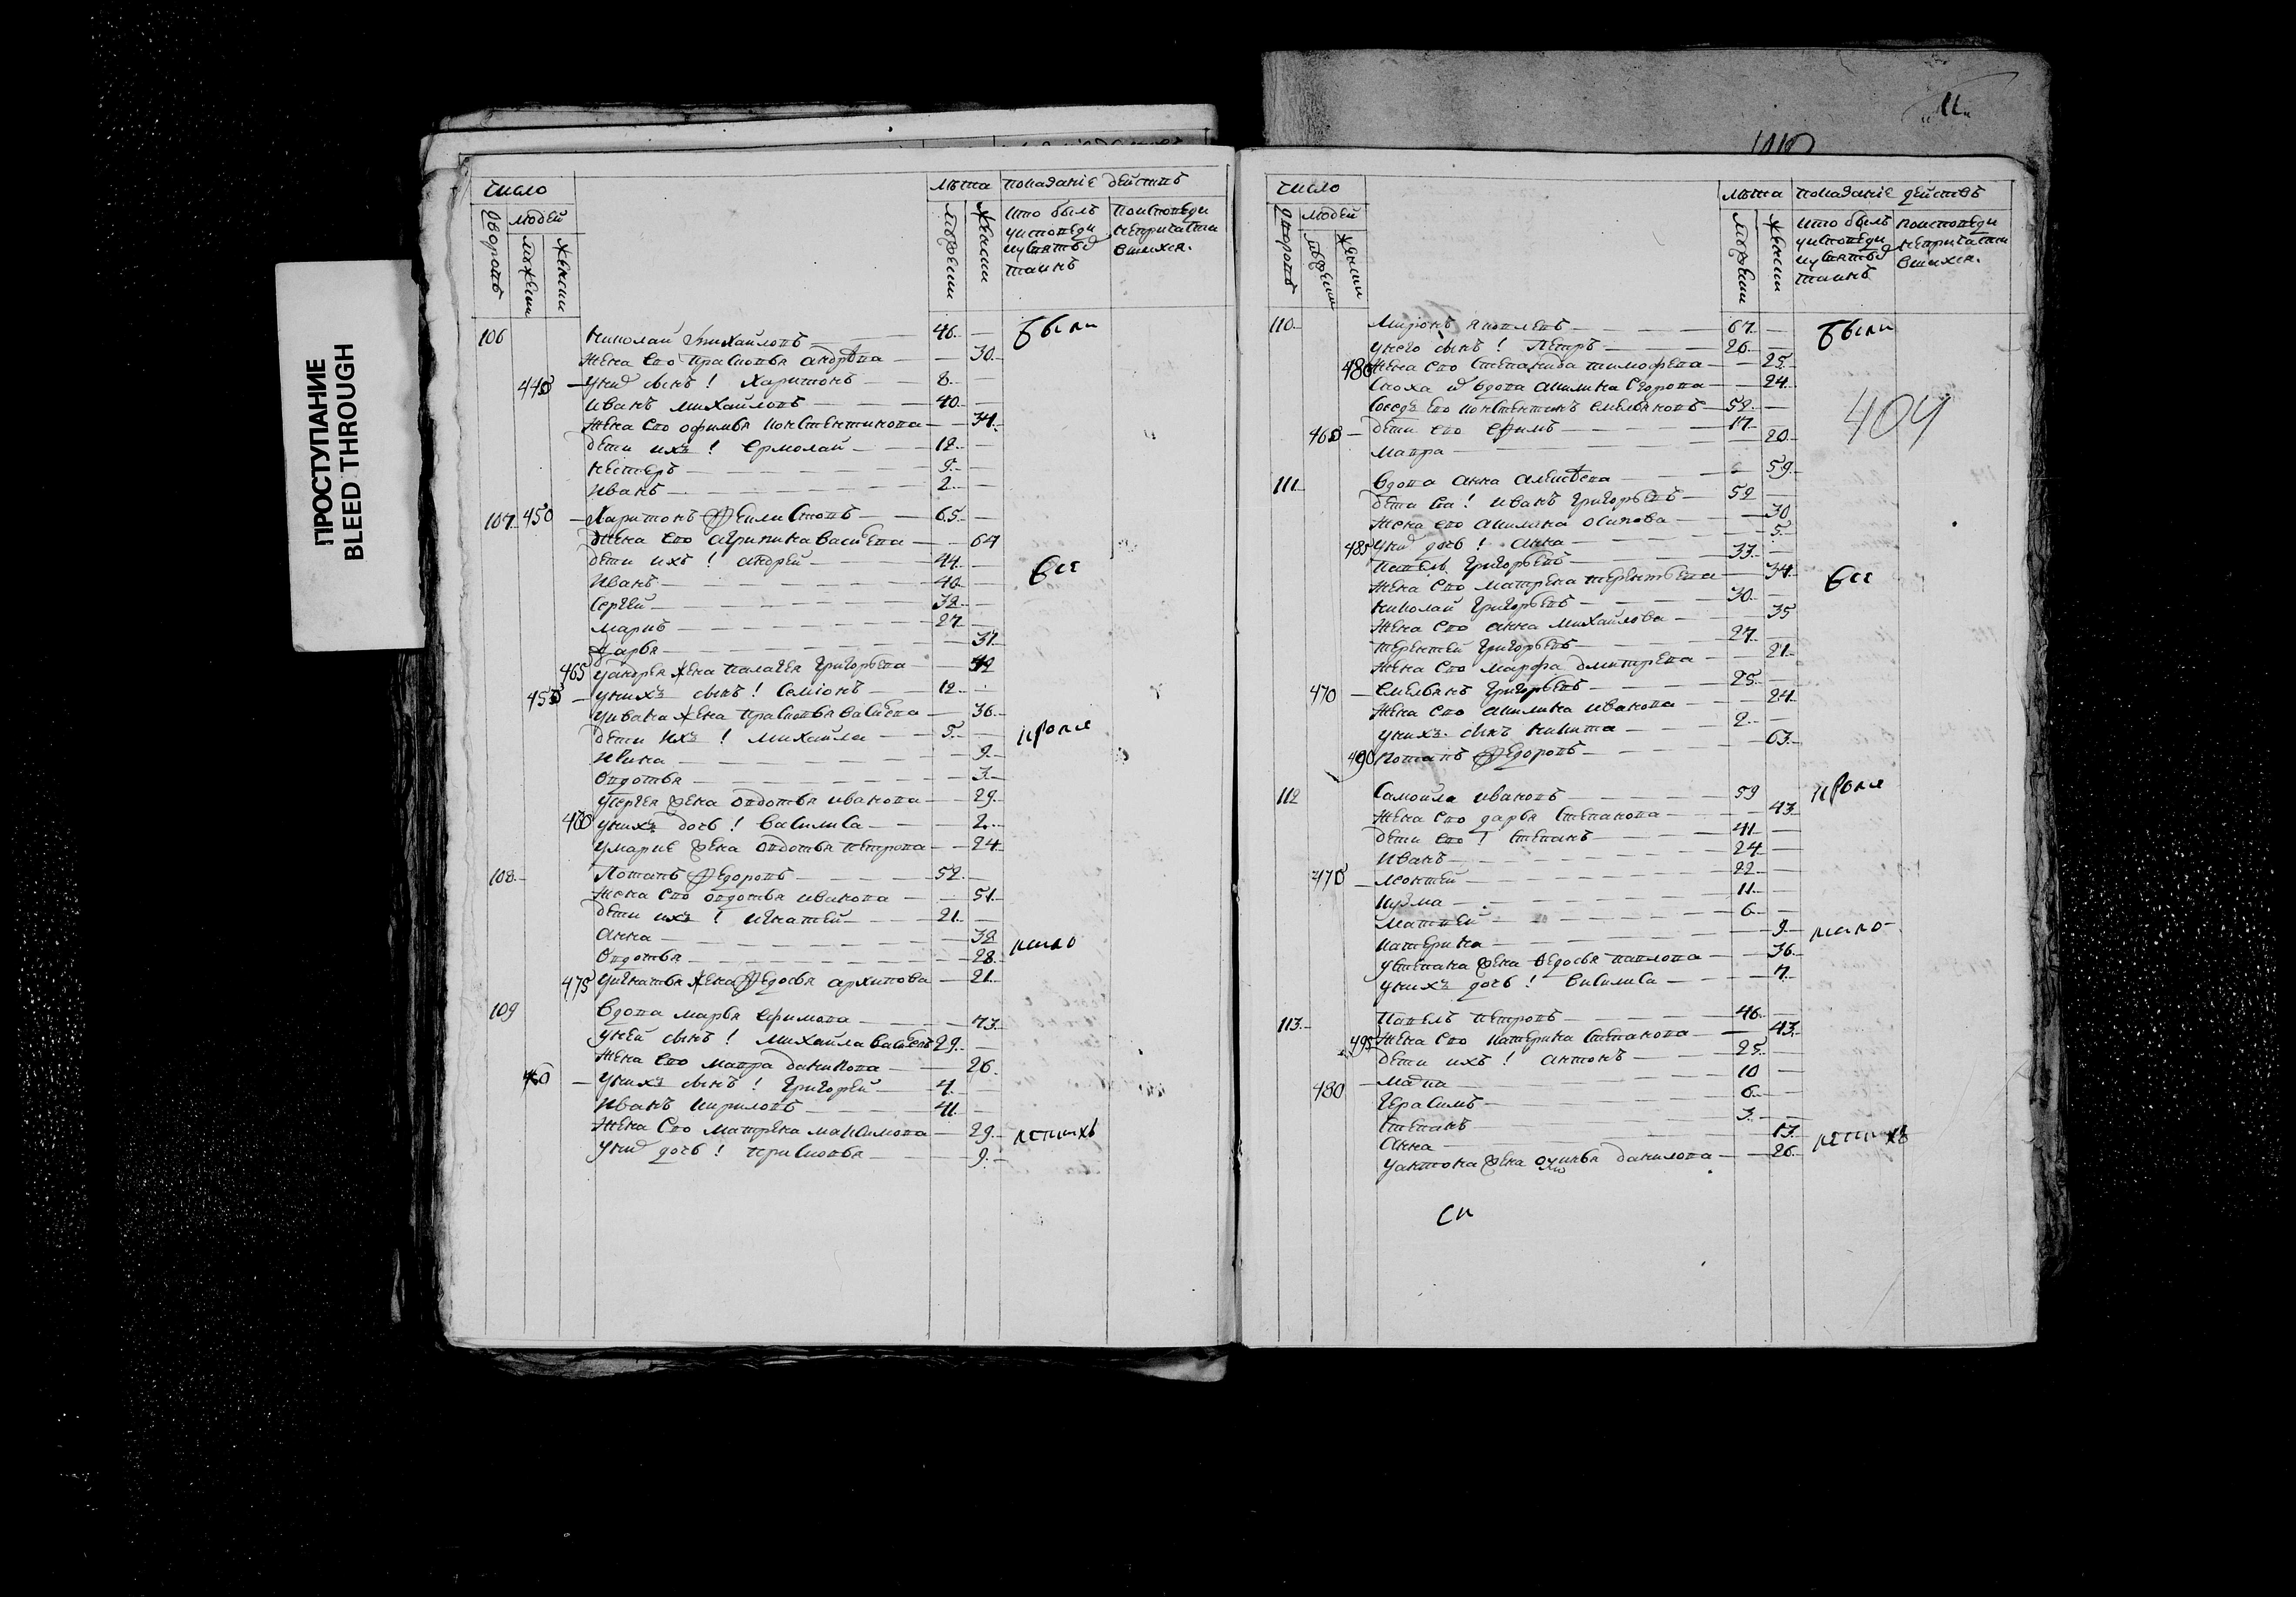 ПРОСТУПАНИЕ
BLEED THROUGH
число
лѣта показаніе действъ
дворовъ людей
мужеск женски
мужески женски
кто былъ уисповеди и у святыхъ таинъ
поисповеди непричастившихся.
106 Николай Михайловъ 46
жена его Прасковья Андрѣва 30
445 у них сынъ! Харитонъ 8
Иванъ Михайловъ 40
жена его Офимья Константинова 34
дети ихъ! Ермолай 12
Нестеръ 5
Иванъ 2
были
107 450 Харитонъ Феилистовъ 65
жена его Агрипина Васильева 64
дети ихъ! Андрей 44
Иванъ 40
Сергей 32
Маркъ 27
Дарья 37
465 у Андрея жена Палагея Григорьева 42
455 у нихъ сынъ! Семіонъ 12
у Ивана жена Прасковья Васильева 36
дети ихъ! Михайла 5
Ирина 9
Овдотья 3
у Сергея жена Овдотья Иванова 29
у нихъ дочь! Василиса 2
у Марке жена Овдотья Петрова 24
все
кроме
108 Потапъ Федоровъ 52
жена его Овдотья Иванова 51
дети ихъ! Игнатей 21
Анна 32
Овдотья 28
475 у Игнатья жена Федосья Архипова 21
мало
109 Вдова Марья Ефимова 73
у ней сынъ! Михайла Васильевъ 29
жена его Мавра Данилова 26
у нихъ сынъ! Григорей 4
Иванъ Кириловъ 41
жена его Матрена Максимова 29
у них дочь! Прасковья 9
летнихъ
11
число
лѣта показаніе действъ
дворовъ людей
мужески женски
мужески женски
кто былъ уисповеди и у святыхъ таинъ
поисповеди непричастившихся.
110 Миронъ Яковлевъ 67
у него сынъ! Петръ 26
480 жена его Степанида Тимофева 25
сноха их вдова Акилина Егорова 24
соседъ его Константинъ Емельяновъ 52
465 дети его Ефимъ 17
Мавра 20
были
404
111 Вдова Анна Алексѣева 59
дети ея! Иванъ Григорьевъ 52
жена его Акилина Осипова 30
485 у них дочь! Анна 5
Павелъ Григорьевъ 37
жена его Матрена Терентьева 34
Николай Григорьевъ 30
жена его Анна Михайлова 35
Терентей Григорьевъ 27
жена его Марфа Дмитрева 21
470 Емельянъ Григорьевъ 25
жена его Акилина Иванова 24
у нихъ сынъ Никита 2
490 Потапъ Федоровъ 63
все
112 Самойла Ивановъ 59
жена его Дарья Степанова 43
дети его! Степанъ 41
Иванъ 24
475 Леонтей 22
Кузма 11
Матвей 6
Катерина 9
у Степана жена Федосья Павлова 36
у нихъ дочь! Василиса 7
кроме
мало
113 Павелъ Петровъ 46
495 жена его Катерина Степанова 43
дети ихъ! Антонъ 25
480 10
Герасимъ 6
Степанъ 3
Анна 13
у Антона жена Данилова 26
летнихъ
си